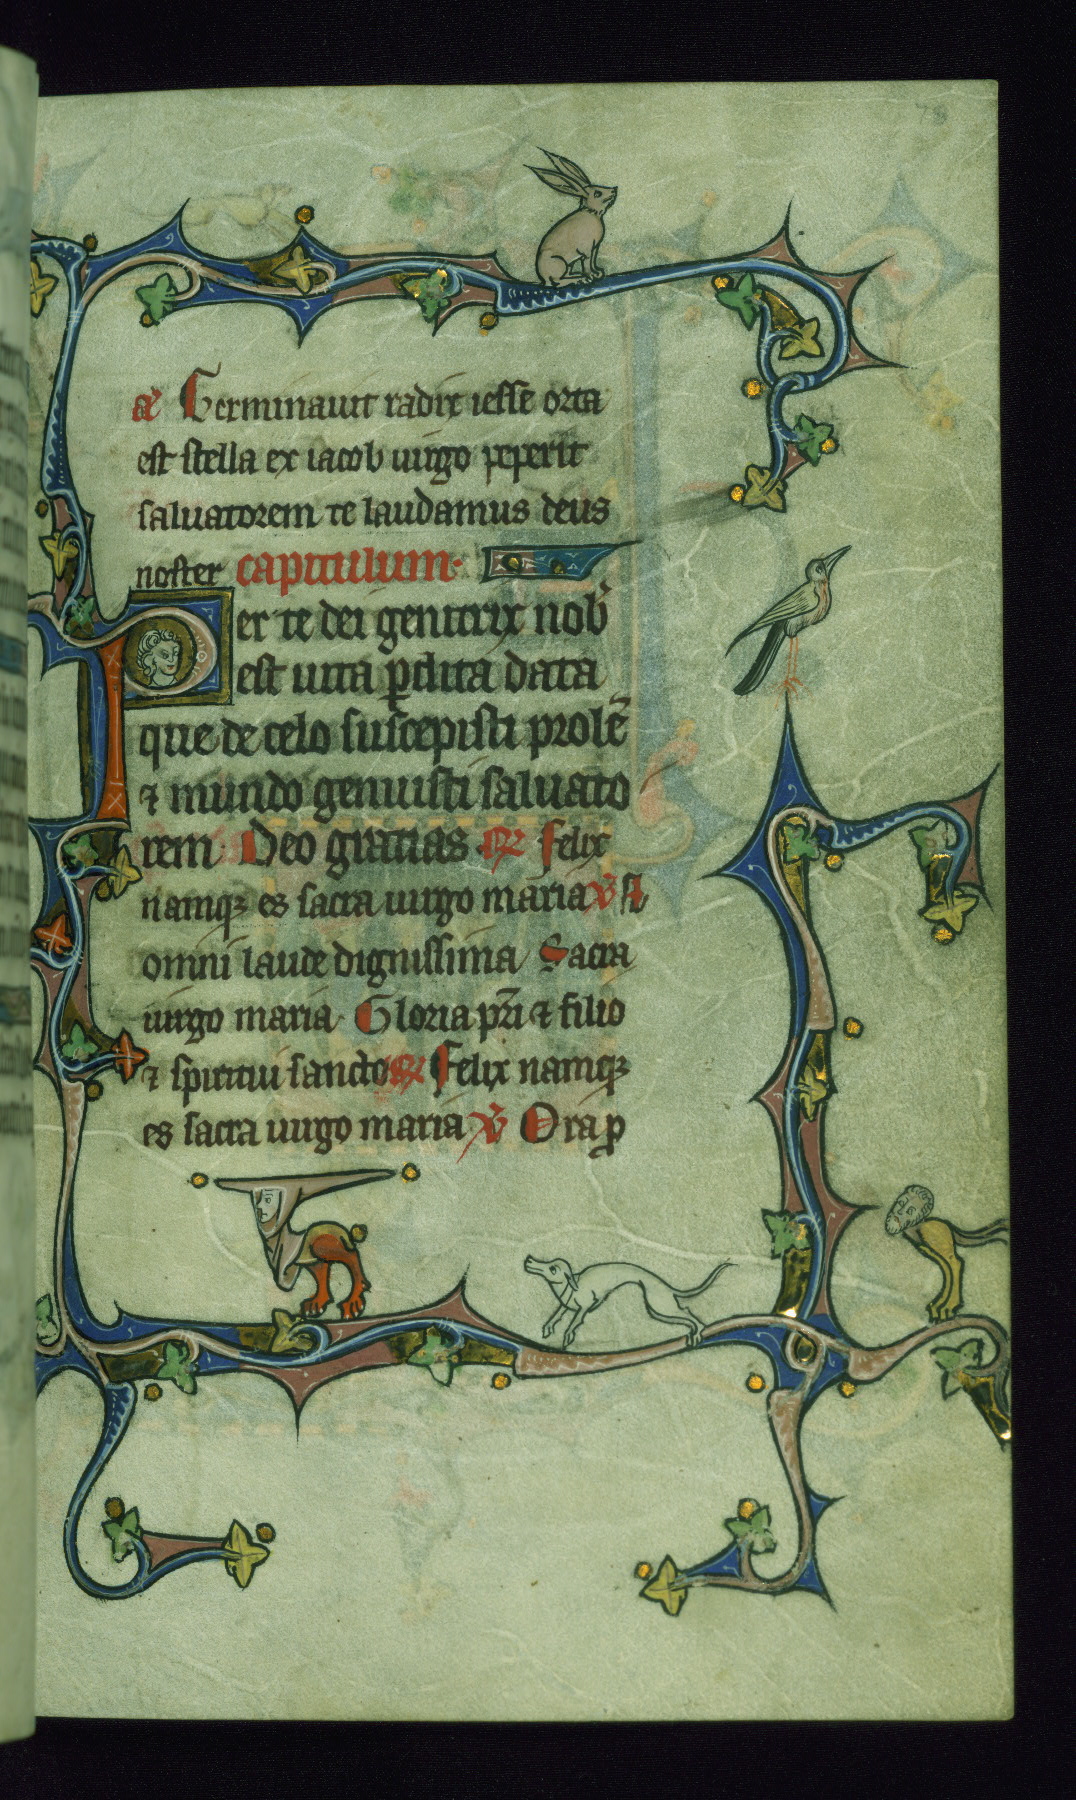 78
añ Germinauit radix iesse orta
est stella ex iacob uirgo peperit
saluatorem te laudamus deus
noster capitulum·
Per te dei genitrix nob̄
est uita ꝑdita data
que de celo suscepisti prolē
⁊ mundo genuisti saluato
rem Deo gratias ℟ Felix
namqꝫ es sacra uirgo maria ℣ &
omni laude dignissima Sacra
uirgo maria Gloria pr̄i ⁊ filio
⁊ spiritui sancto ℟ Felix namqꝫ
es sacra uirgo maria ℣ Ora ꝓ